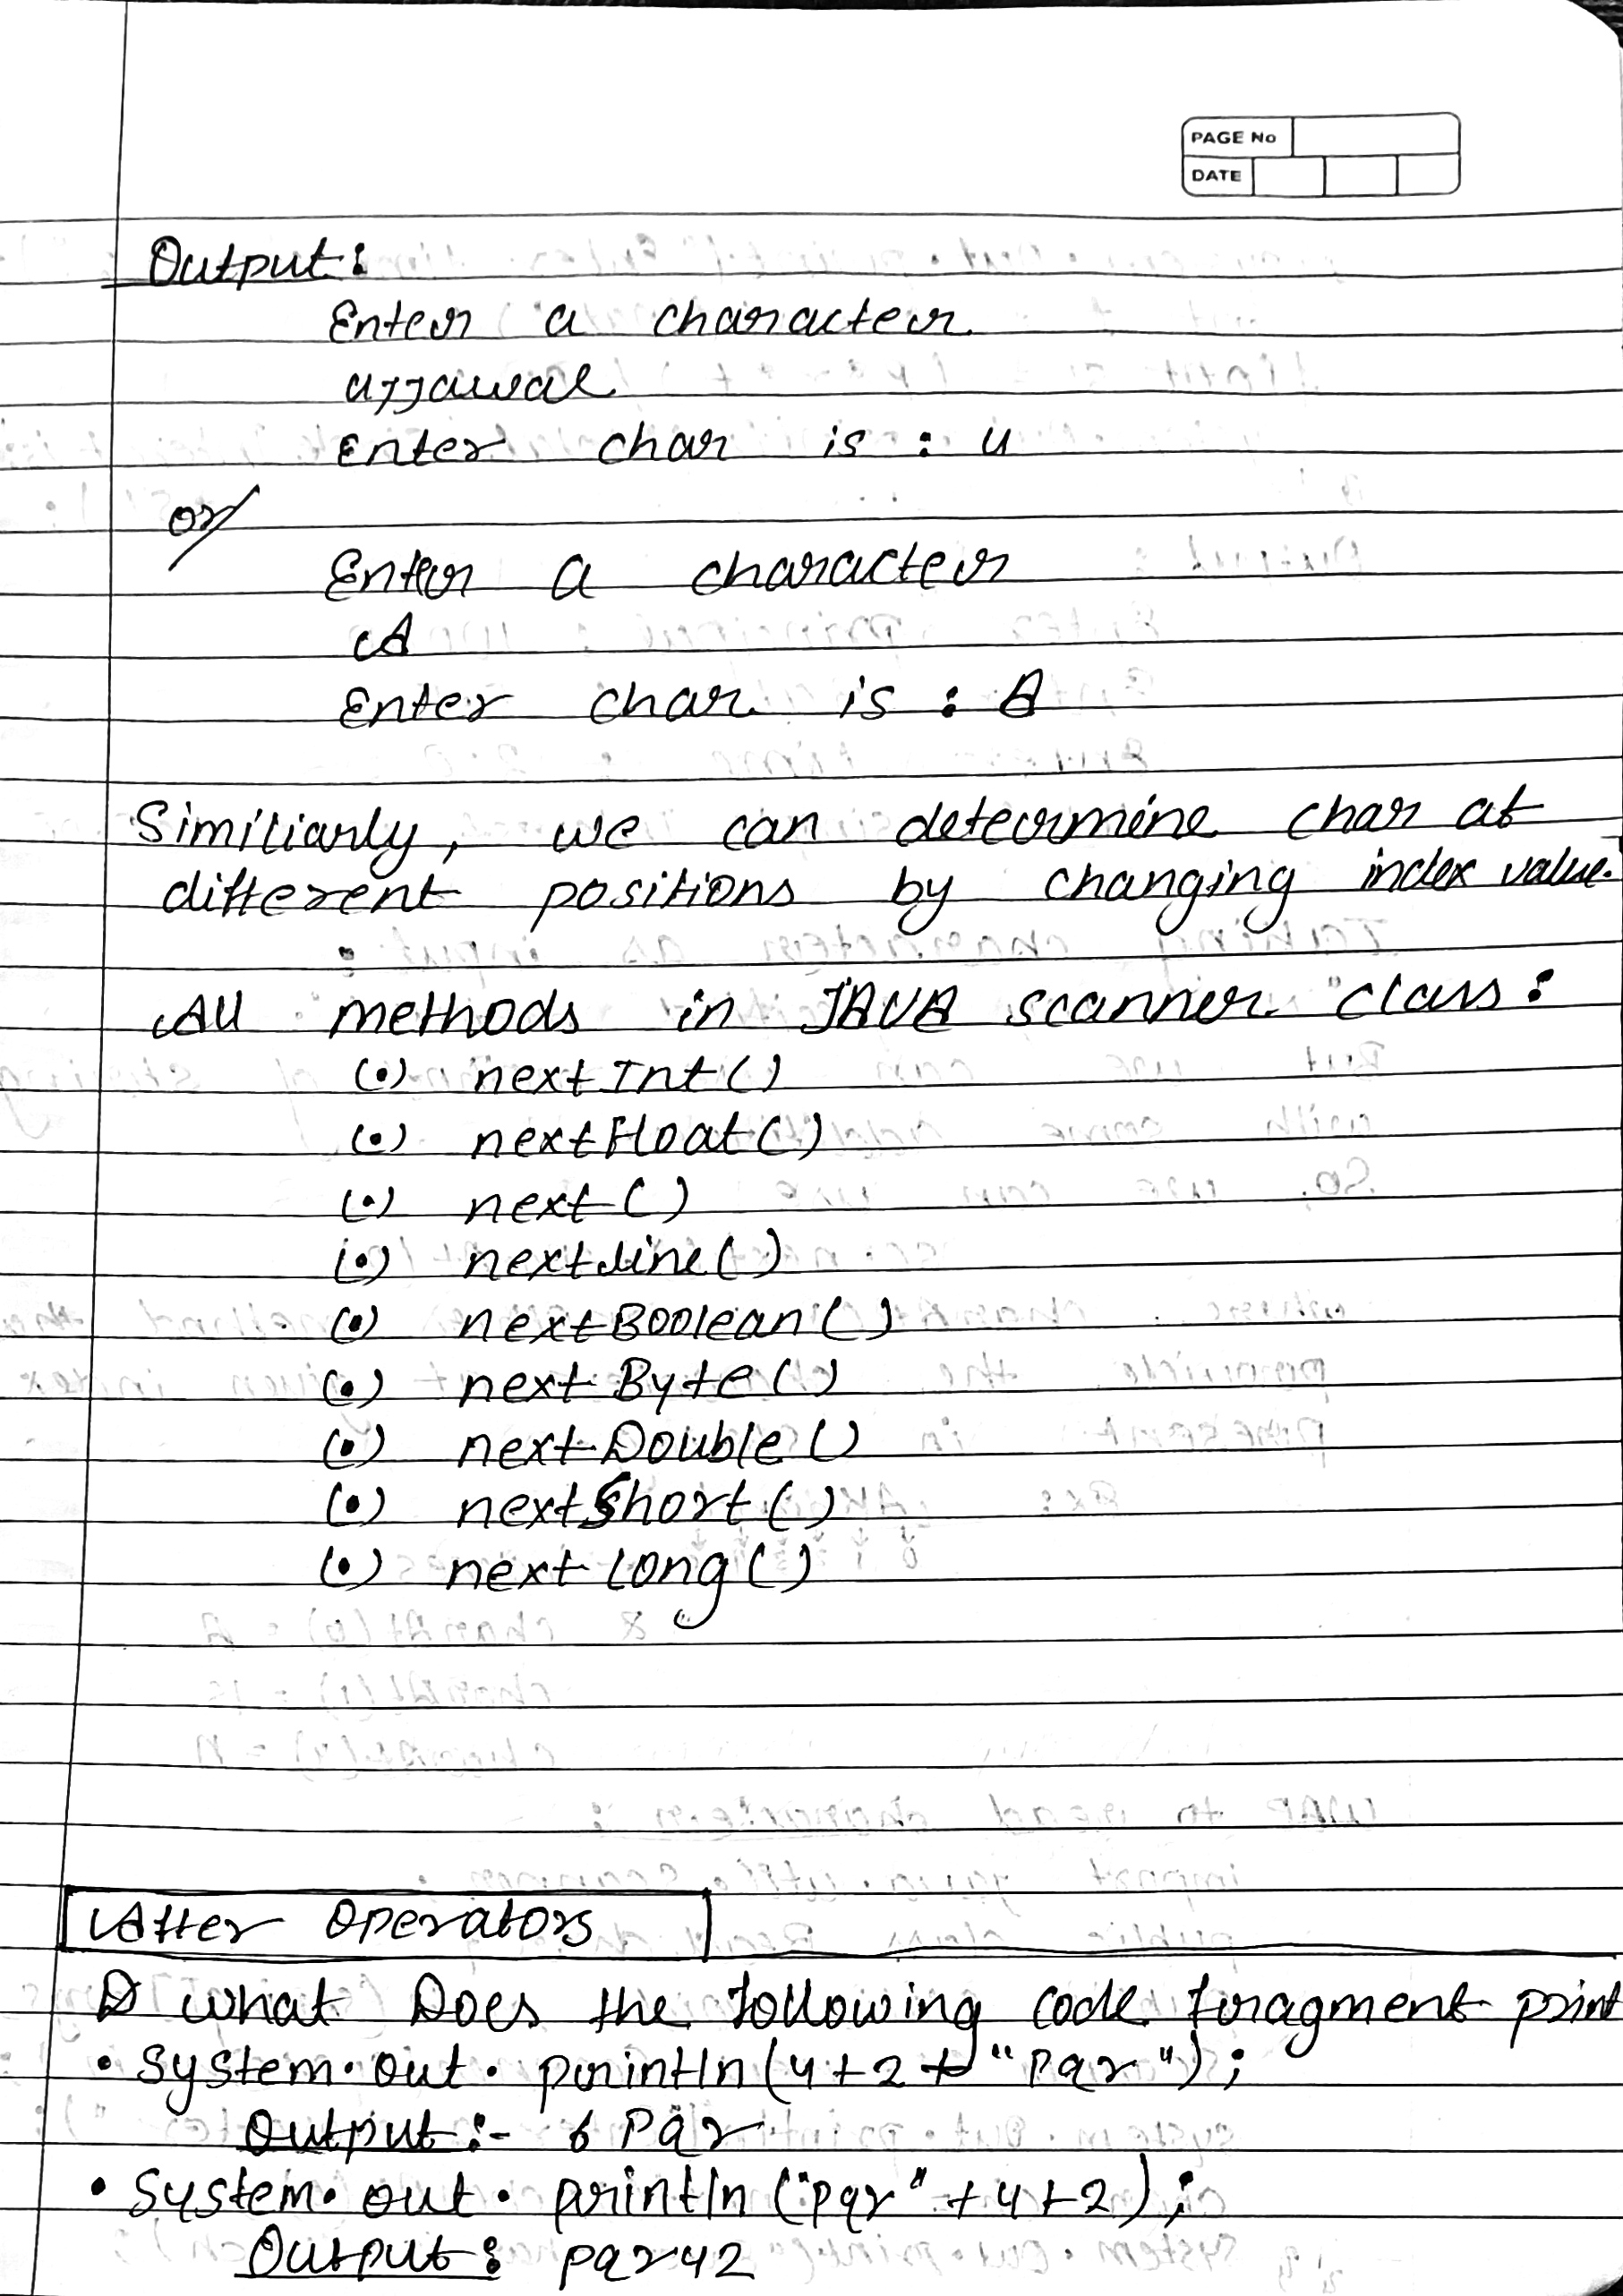 PAGE No
DATE
Output:
Enter a character
ujjawal
Enter char is : u
or
Enter a character
A
Enter char is : A
Similiarly, we can determine char at
different positions by changing index value.
All methods in JAVA scanner class:
(•) nextInt()
(•) nextFloat()
(•) next()
(•) nextLine()
(•) nextBoolean()
(•) nextByte()
(•) nextDouble()
(•) nextShort()
(•) nextLong()
After Operators
what Does the following code fragment print
• System.out.println(4+2+"Pqr");
Output:- 6Pqr
• System.out.println("pqr"+4+2);
Output: pqr42